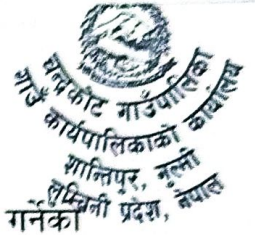 चन्द्रकोट गाउँपालिका
गाउँ कार्यपालिकाको कार्यालय
शान्तिपुर, गुल्मी
लुम्बिनी प्रदेश, नेपाल
गर्नेको